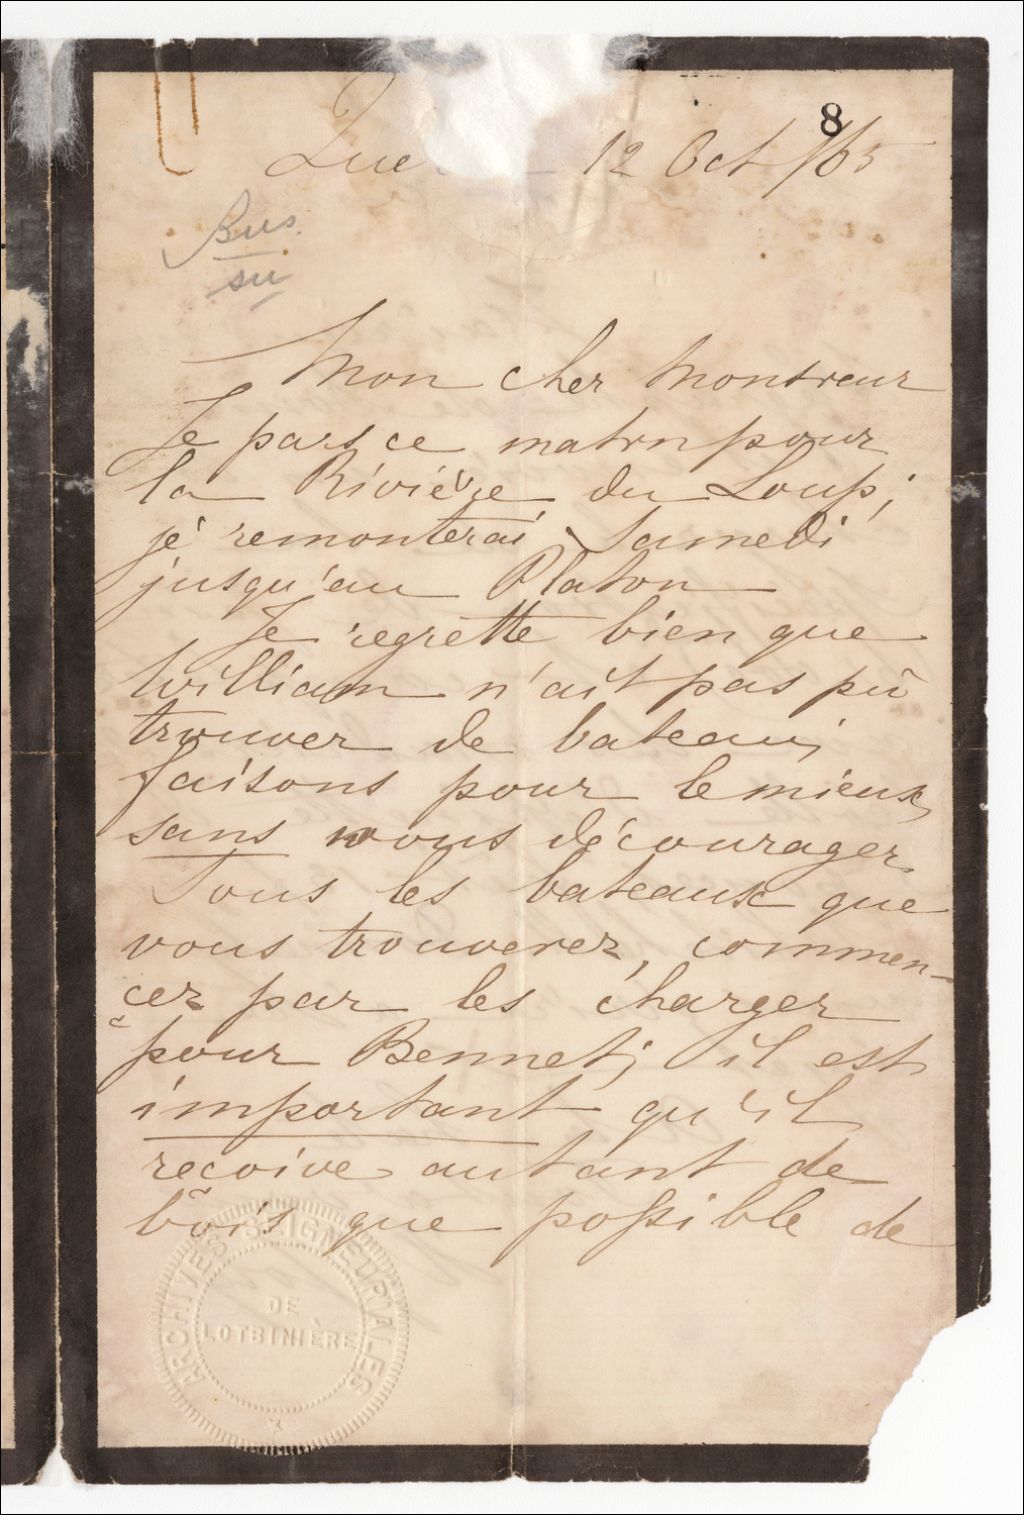 8
12 Oct /65
Bus.
su
Mon cher Monsieur
Je pars ce matin pour
la Rivière du Loup;
je remonterai Samedi
jusqu'au Platon
Je regrette bien que
William n'ait pas pû
trouver de bateau;
faisons pour le mieux,
sans nous décourager.
Tous les bateaux que
vous trouverez, commen-
cez par les charger
pour Bennet; il est
important qu'il
recoive autant de
bois que possible de
ARCHIVES SEIGNEURIALES
DE
LOTBINIÈRE